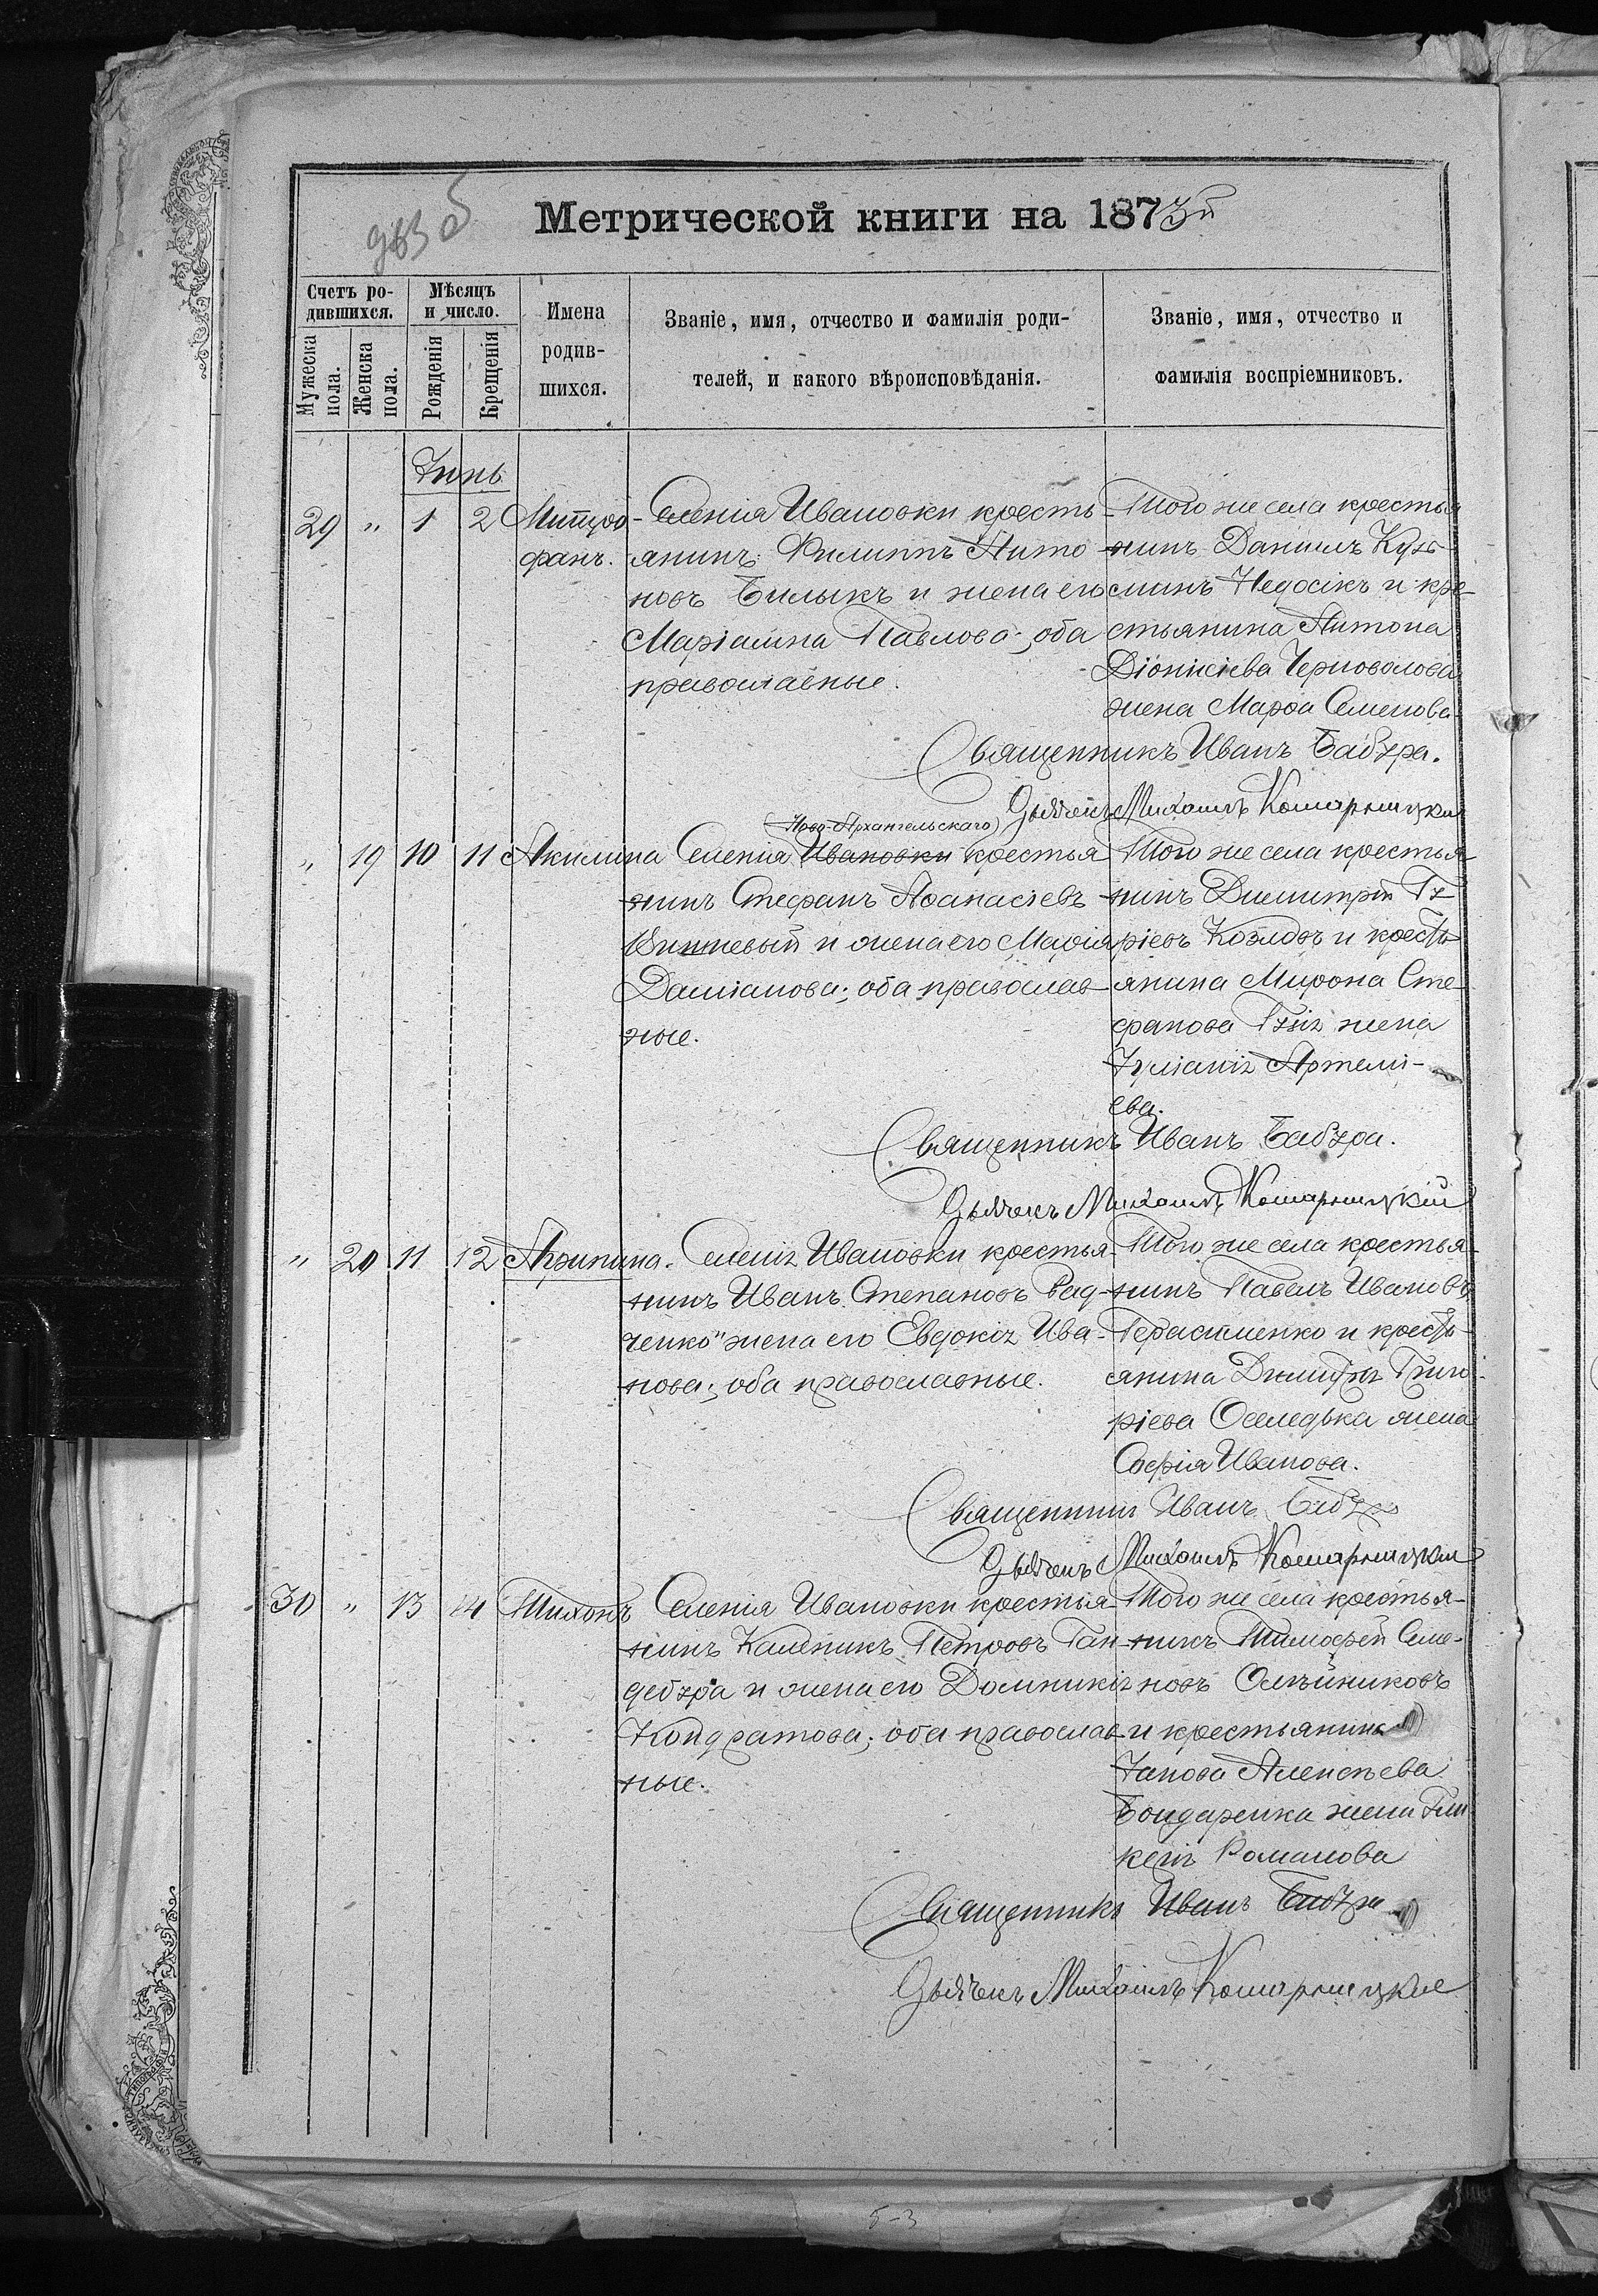 963 об
Метрической книги на 1873й
Счетъ ро-
дившихся.
Мѣсяцъ
и число.
Имена
родив-
шихся.
Званіе, имя, отчество и фамилія роди-
телей, и какого вѣроисповѣданія.
Званіе, имя, отчество и
фамилія воспріемниковъ.
Мужеска
пола.
Женска
пола.
Рожденія
Крещенія
Іюнь
29 " 1 2 Митро-
фанъ.
Селенія Ивановки кресть-
янинъ Филиппъ Анто-
новъ Билыкъ и жена его
Маріамна Павлова; оба
православные.
Того же села крестья
нинъ Даніилъ Кузь-
минъ Недосікъ и кре-
стьянина Антона
Діонисіева Черноволова
жена Марѳа Семенова
Священникъ Иванъ Бабура.
Дьячекъ Михаилъ Комарницкій
" 19 10 11 Акилина
(Ново-Архангельскаго)
Селенія Ивановки крестья
нинъ Стефанъ Аѳанасіевъ
и жена его Марія
Даміанова; оба православ
ные.
Того же села крестья
нинъ Димитрій Гу
ріевъ Козловъ и кресть
янина Мирона Сте
фанова жена
Іуліанія Артемі-
ева.
Священникъ Иванъ Бабура.
Дьячекъ Михаилъ Комарницкій
" 20 11 12 Агрипина.
Селенія Ивановки крестья-
нинъ Иванъ Степановъ Рад-
ченко и жена его Евдокія Ива-
нова; оба православные.
Того же села крестья-
нинъ Павелъ Ивановъ
Герасименко и кресть-
янина Димитрія Григо-
ріева Оселедька жена
Софія Иванова.
Священникъ Иванъ Бабура
Дьячекъ Михаилъ Комарницкій
30 " 13 14 Тихонъ
Селенія Ивановки крестья-
нинъ Каленикъ Петровъ Ган-
дебура и жена его Домникія
Кондратова; оба православ-
ные.
Того же села крестья-
нинъ Тимофей Семе-
новъ Олейниковъ
и крестьянина
Іакова Алексѣева
Бондаренка жена Гли
керія Романова
Священникъ Иванъ Бабура
Дьячекъ Михаилъ Комарницкій
5-3